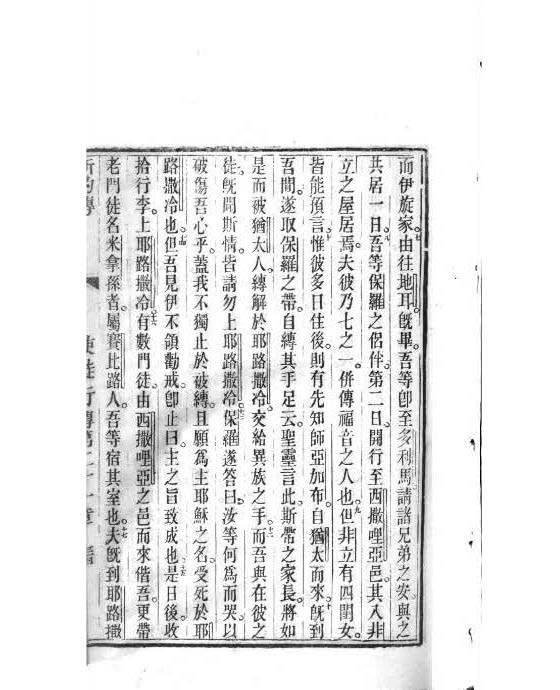 而伊旋家由往地耳。既畢。吾等卽至多利馬請諸兄弟之安與之
共居一日。吾等保羅之侶伴。第二日開行至西撒哩亞邑。其入非
立之屋居焉。夫彼乃七之一。併傳福音之人也。但非立有四閨女。
皆能預言。惟彼多日住後。則有先知師亞加布。自猶太而來。旣到
吾間。遂取保羅之帶。自縛其手足云。聖靈言此。斯帶之家長將如
是而被猶太人縛解於耶路撒冷。交給異族之手。而吾與在彼之
徒。旣聞斯情。皆請勿上耶路撒冷。保羅遂答曰。汝等何爲而哭。以
破傷吾心乎。蓋我不獨止於被縛。且願爲主耶穌之名。受死於耶
路撒冷也。但吾見伊不領勸戒。卽止曰。主之旨致成也。是日後收
拾行李。上耶路撒冷。有數門徒。由西撒哩亞之邑而來偕吾。更帶
老門徒名米拿孫者。屬賽比路人。吾等宿其室也。夫旣到耶路撒